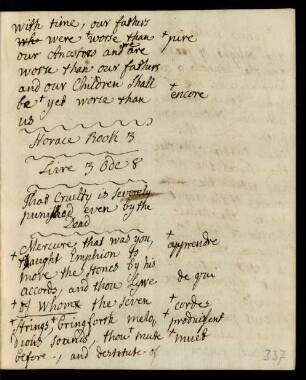 with time, our fathers
who were † worse than † pire
our Ancestors and are
worse than our fathers
and our Children shall
be † yet worse than † encore
us
Horace Book 3
Livre 3 Ode 8
That Cruelty is severely
punished even by the
Dead
† Mercure, that was you,
† taught Amphion to † apprendre
move the stones by his
accords, and thou Lyre de qui
† of Whom the seven
† strings † bring forth melo, † cordes
dious sounds, thou † mute † produisent
before, and destitute of † muet
337